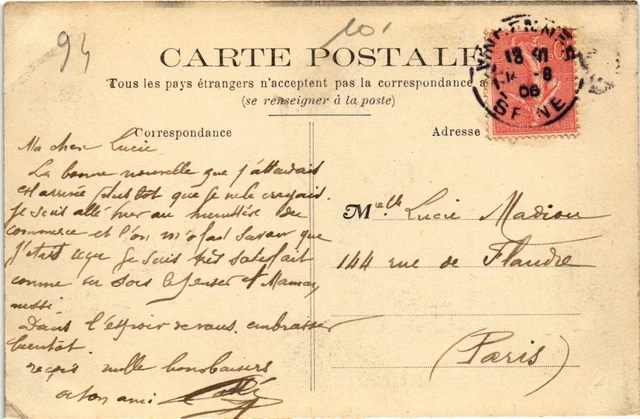 94
10
CARTE POSTALE
Tous les pays étrangers n'acceptent pas la correspondance a
(se renseigner à la poste)
VINCENNES
18
8
06
SEINE
Correspondance
Adresse
Ma cher Lucie
La bonne nouvelle que j'attendait
est arrivée plustot que je ne le croyais.
Je suis allé hier au ministère du
commerce et l'on m'a fait savoir que
J'étais reçu Je suis très satisfait
comme tu dois le penser et Maman
aussi
Dans l'espoir de vous embrasser
bientot
reçois mille bons baisers
de ton ami
Melle Lucie Madiou
144 rue de Flandre
(Paris)